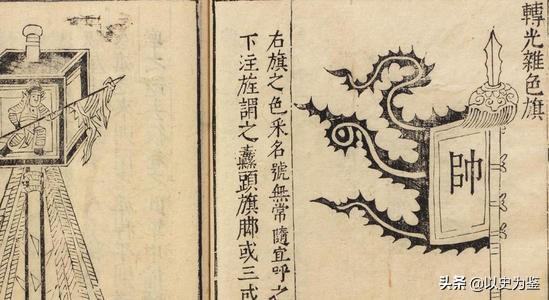 轉光雜色旗
帥
右旗之色采名號無常隨宜呼之
下注旌謂之纛頭旗脚或三或
头条 @以史为鉴